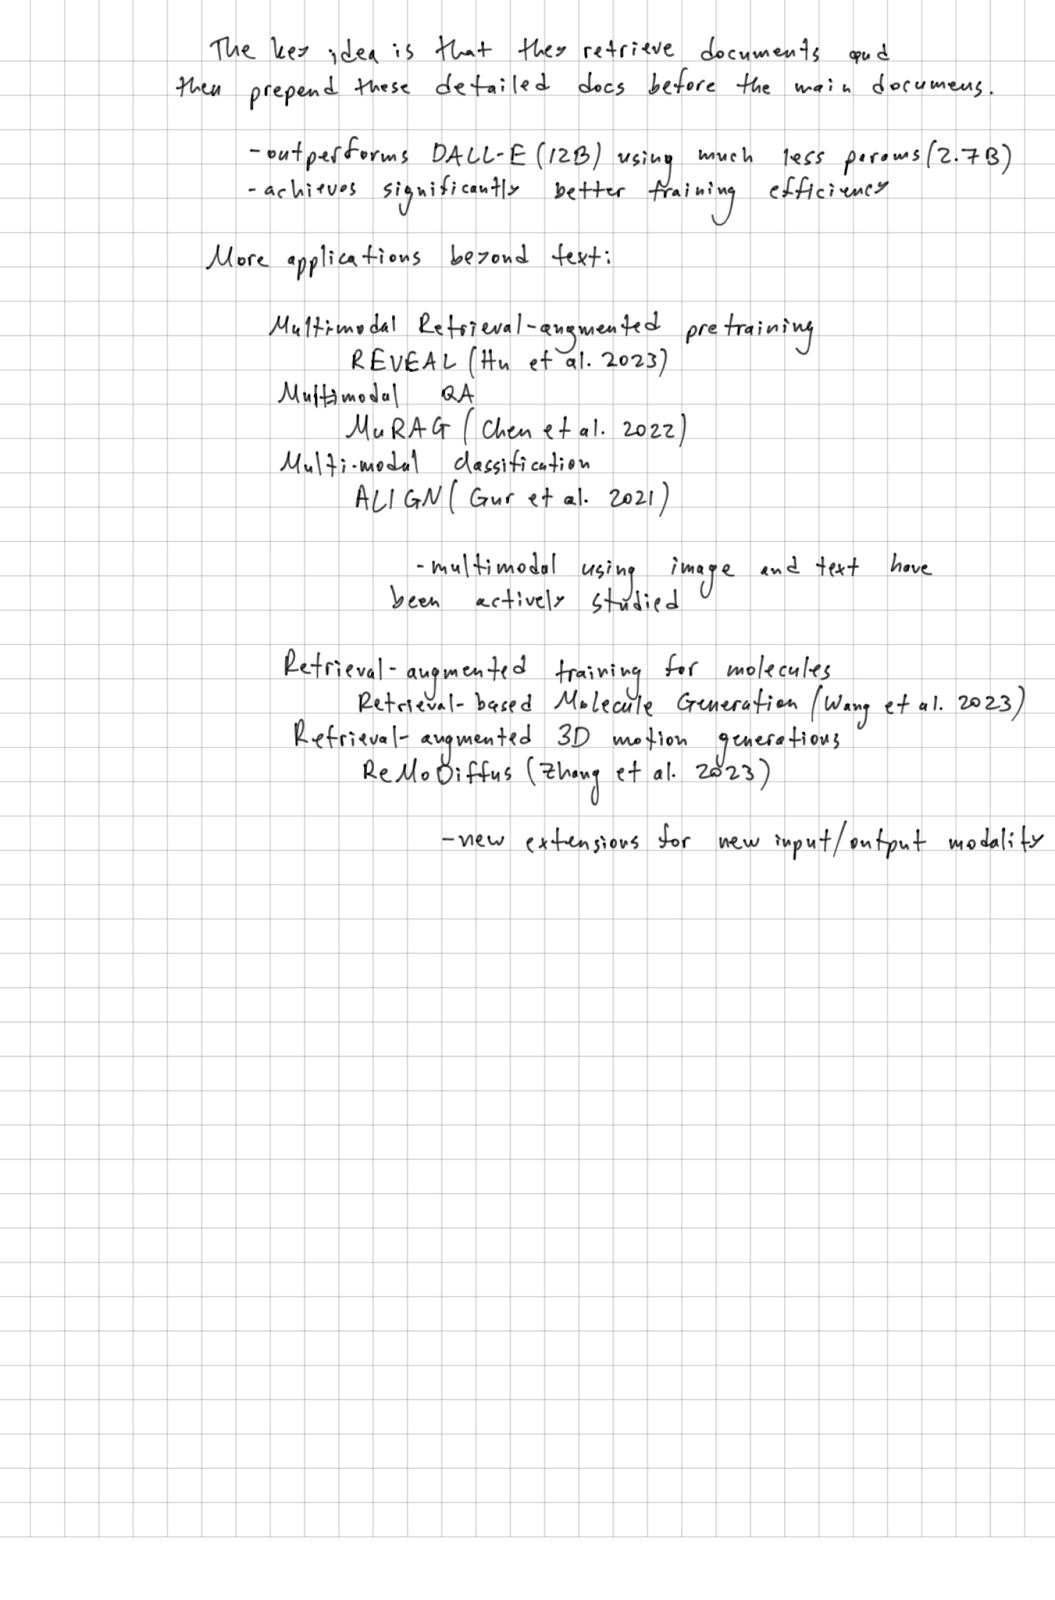 The key idea is that they retrieve documents and
then prepend these detailed docs before the main documens.
-outperforms DALL-E (12B) using much less params (2.7B)
-achieves significantly better training efficiency
More applications beyond text:
Multimodal Retrieval-augmented pretraining
REVEAL (Hu et al. 2023)
Multimodal QA
MuRAG (Chen et al. 2022)
Multi-modal classification
ALIGN (Gur et al. 2021)
-multimodal using image and text have
been actively studied
Retrieval-augmented training for molecules
Retrieval-based Molecule Generation (Wang et al. 2023)
Retrieval-augmented 3D motion generations
ReMoDiffus (Zhang et al. 2023)
-new extensions for new input/output modality